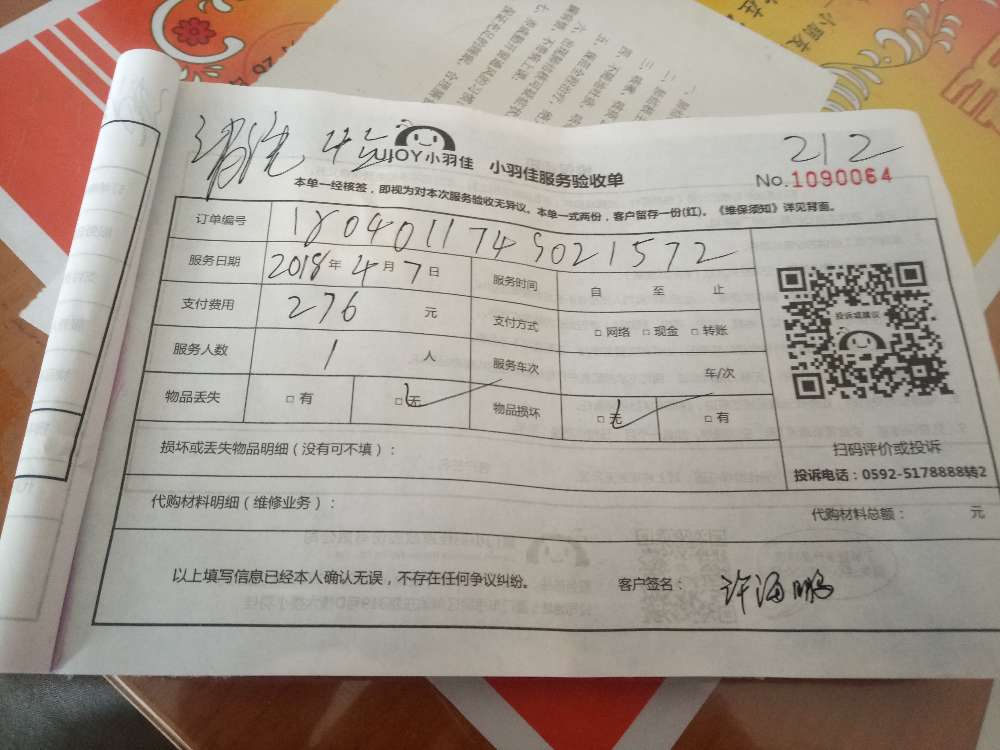 212
UJOY小羽佳 小羽佳服务验收单
No.1090064
本单一经核签，即视为对本次服务验收无异议。本单一式两份，客户留存一份(红)。《维保须知》详见背面。
订单编号 1804011745021572
服务日期 2018年4月7日 服务时间 自 至 止
支付费用 276 元 支付方式 □网络 □现金 □转账
服务人数 1 人 服务车次 车/次
物品丢失 □有 □无 物品损坏 □无 □有
投诉或建议
扫码评价或投诉
投诉电话：0592-5178888转2
损坏或丢失物品明细（没有可不填）：
代购材料明细（维修业务）：
代购材料总额： 元
以上填写信息已经本人确认无误，不存在任何争议纠纷。 客户签名： 许海鹏